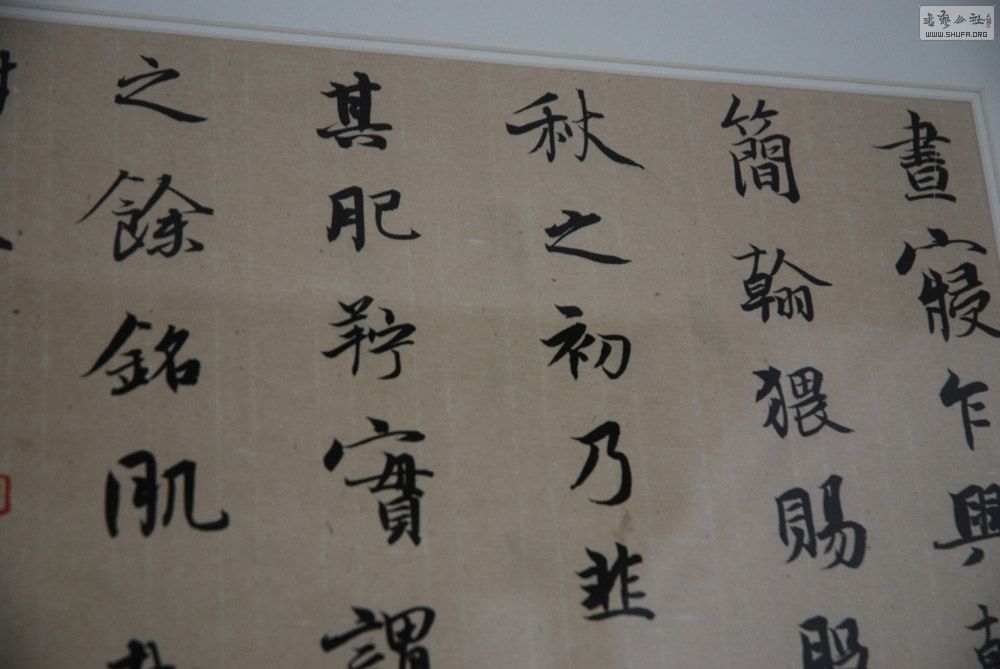 晝寢乍興
簡翰猥賜
秋之初乃韭
其肥羜實謂
之餘銘肌
書藝公社
WWW.SHUFA.ORG